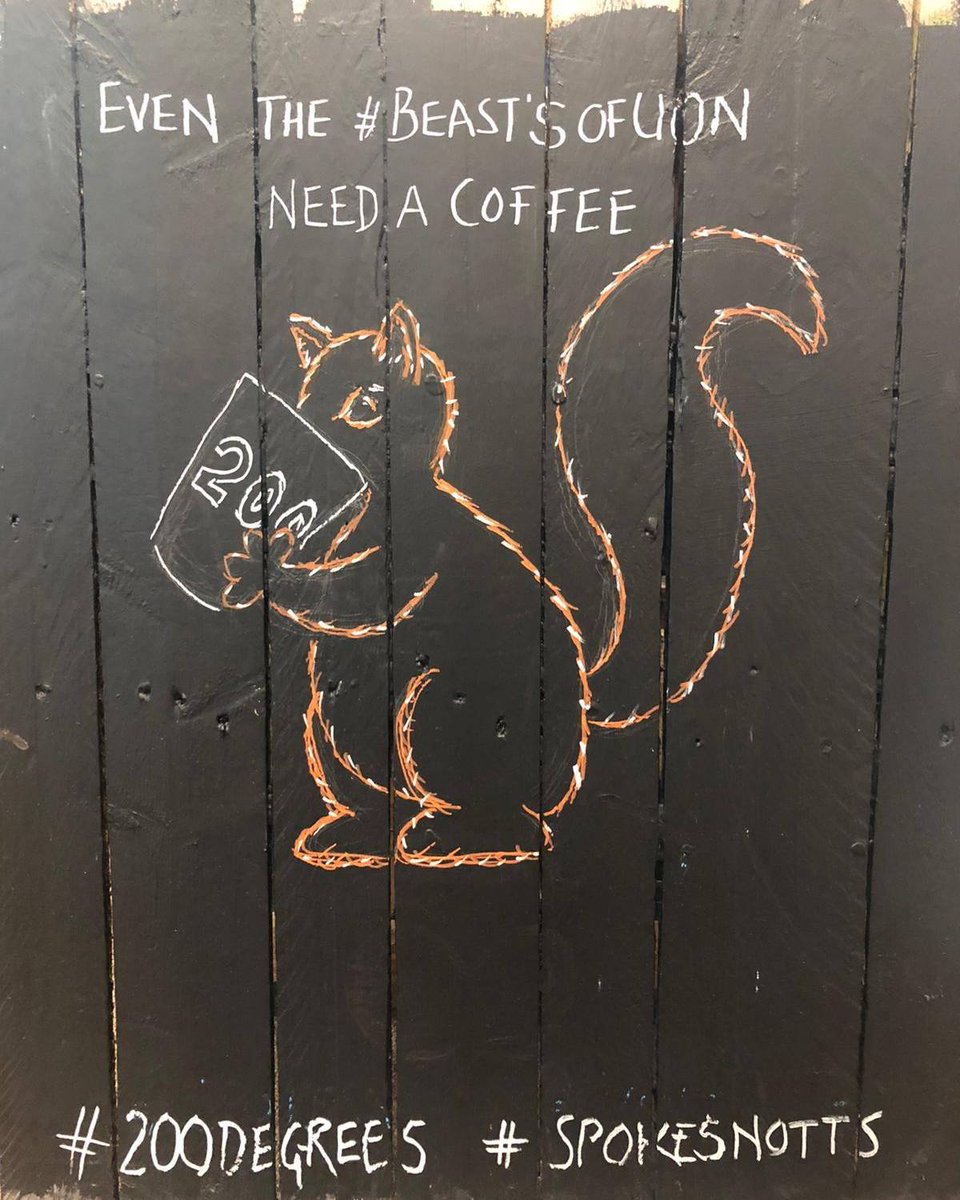 EVEN THE #BEAST'S OFUON
NEED A COFFEE
200
#200DEGREES # SPOKESNOTTS